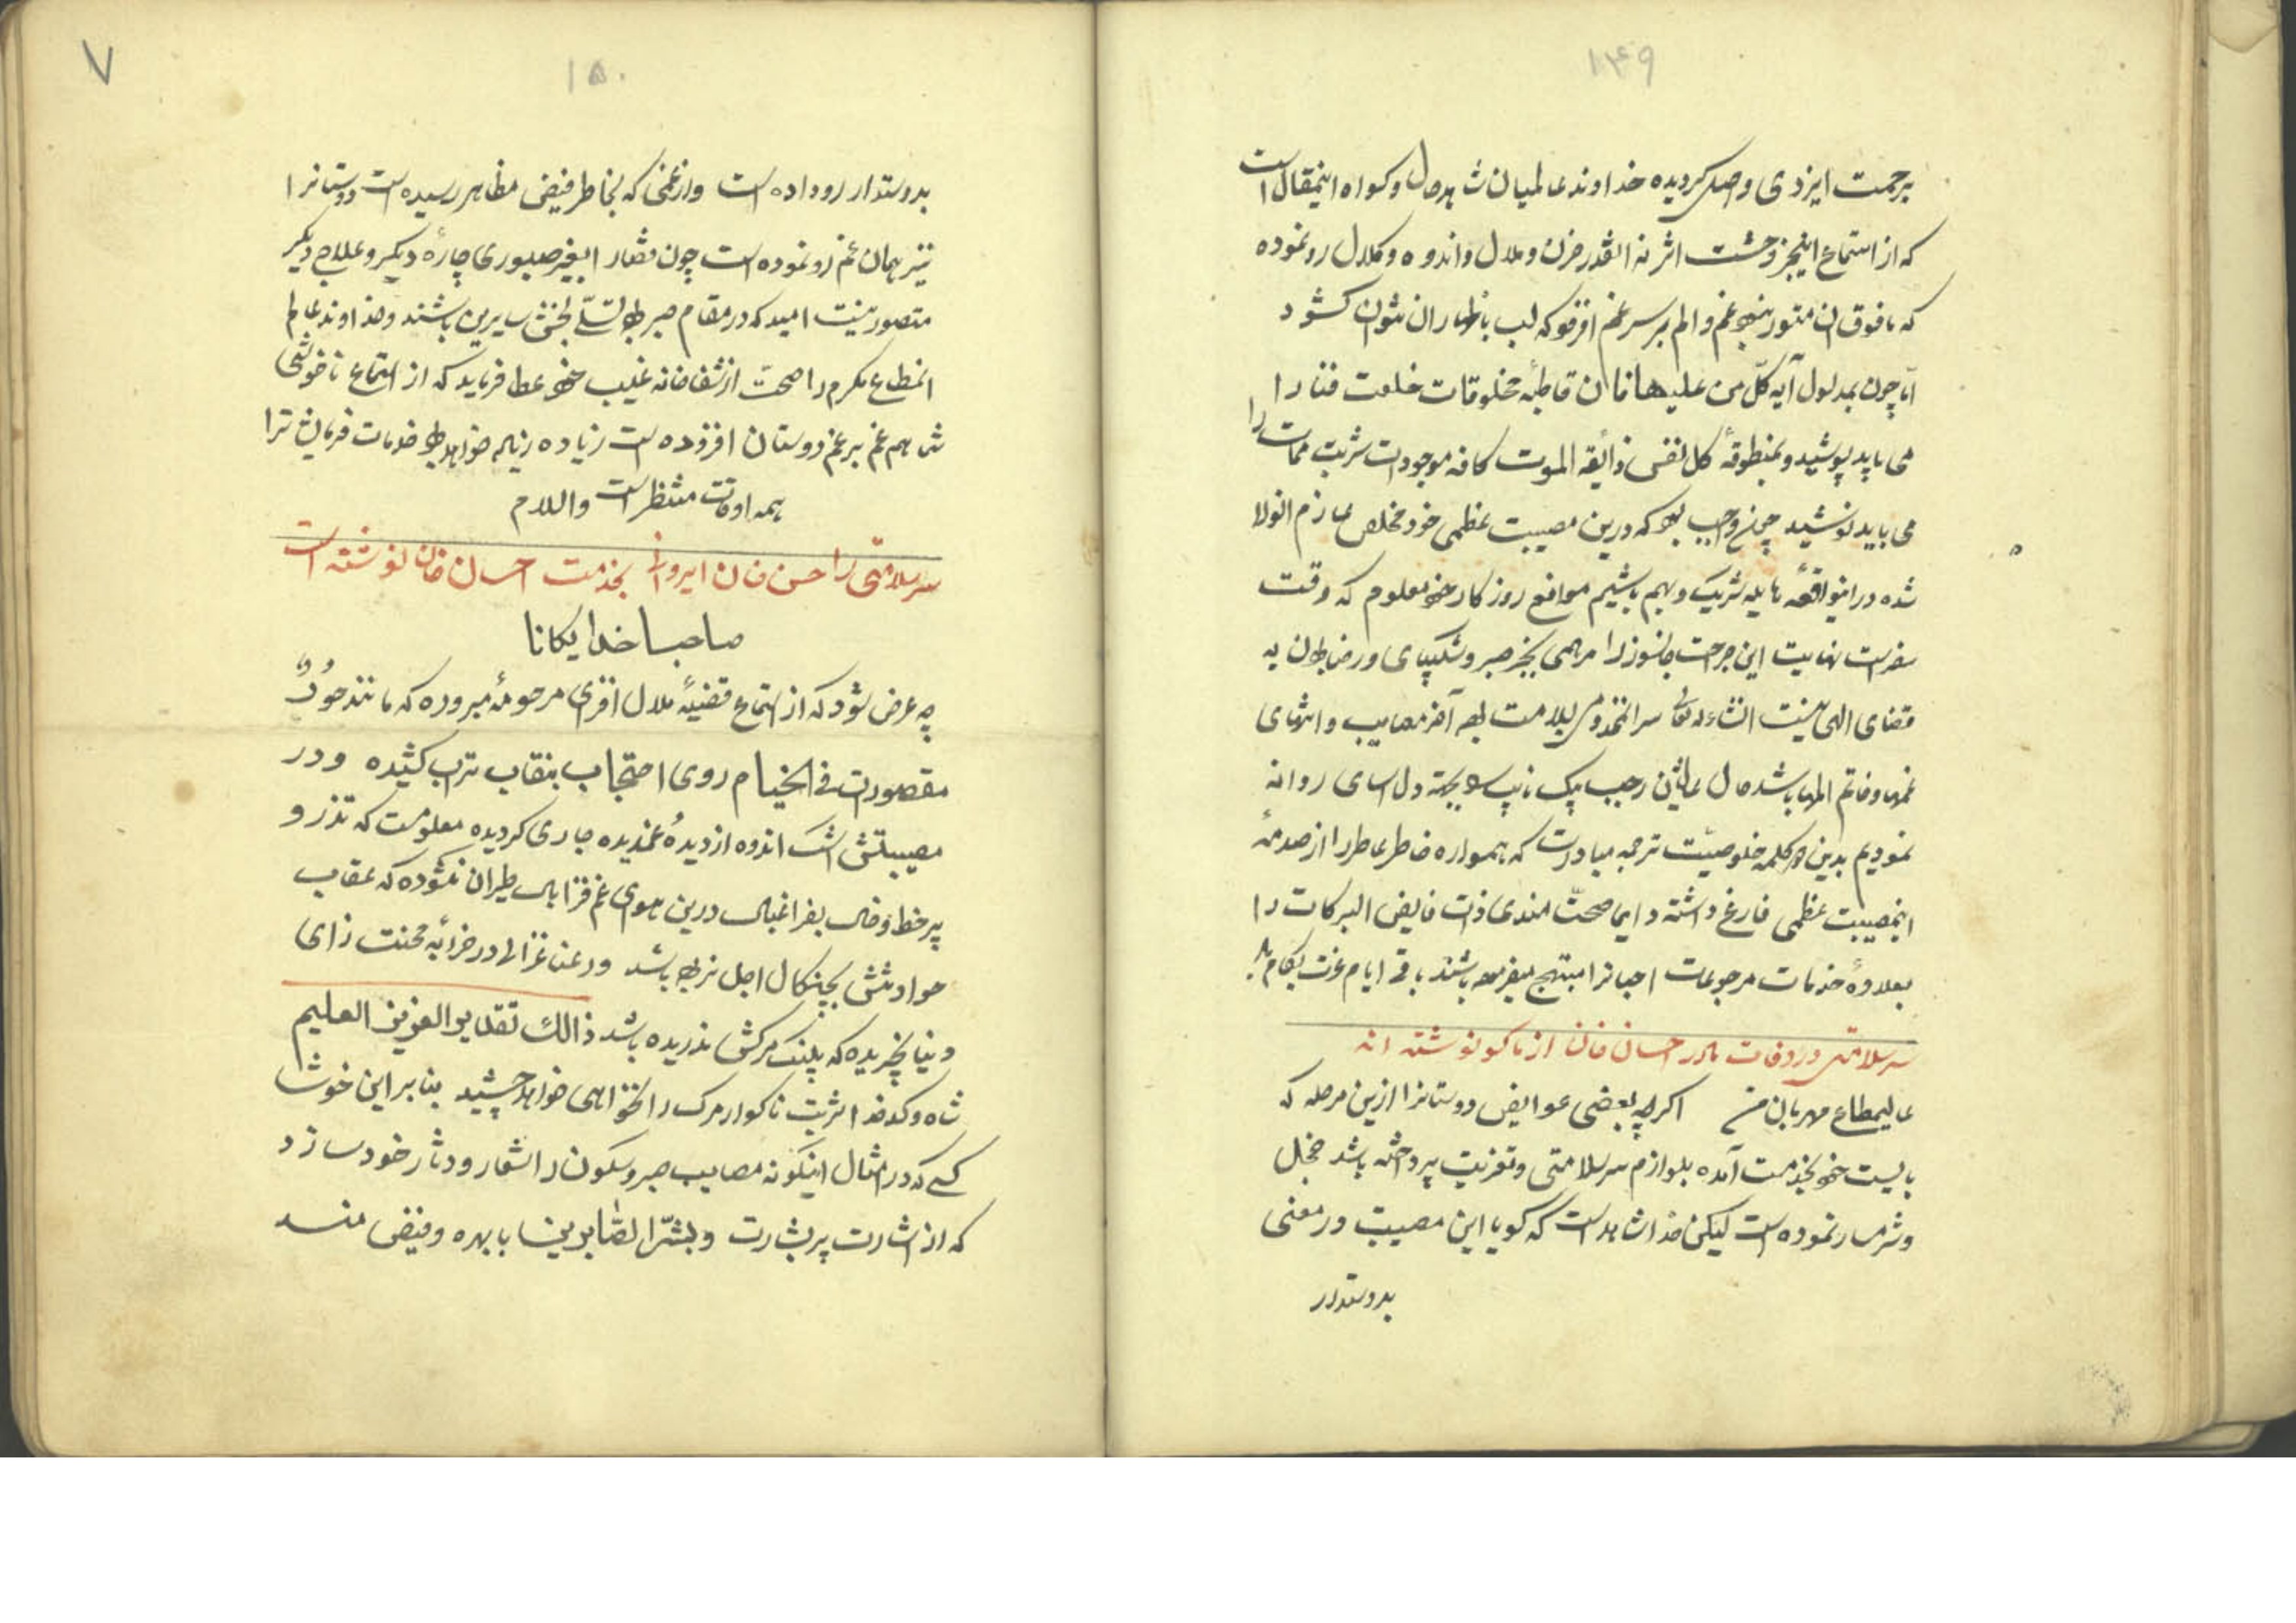 ۱۴۹
برحمت ایزدی واصل کردیده خداوند عالمیان شاهد حال وکواه اینمقال است
که از استماع اینخبر وحشت اثر نه انقدر حزن و ملال و اندوه و کلال رو نموده
که مافوق ان متصور بنود غم و الم بر سر غم افزود که لب باظهار ان نتوان کشود
اما چون بمدلول آیه کلّ من علیها فان قاطبهٔ مخلوقات خلعت فنا را
می باید پوشید و بمنطوقهٔ کل نفس ذائقه الموت کافه موجودات شربت ممات را
می باید نوشید واجب بود که درین مصیبت عظمی خود مخلص عازم انولا
شده در اینواقعهٔ هایله شریک و بهم باشیم موانع روزکار خود معلوم که وقت
سفر است نهایت این جراحت جانسوز را مرهمی بجز صبر و شکیبای و رضا بودن به
قضای الهی نیست انشاءالله تعالی سر انمخدوم بسلامت بوده آخر مصایب و انتهای
غمها و خاتم المها باشد حال عالیشان رجب بیک نایب
نمودیم بدین دو کلمه خلوصیّت ترجمه مبادرت که همواره خاطر عاطر را از صدمهٔ
اینمصیبت عظمی فارغ داشته دایما صحّت مندی ذات فایض البرکات را
بعلاوهٔ خدمات مرجوعات احبانرا مبتهج میفرموده باشند باقی ایام عزت بکام باد
سر سلامتی در وفات مادر احسان خان از ماکو نوشته اند
عالیمطاع مهربان من اکرچه بعضی عوایض دوستانرا ازین مرحله که
بایست خود بخدمت آمده بلوازم سر سلامتی و تعزیت پرداخته باشد خجل
و شرمسار نموده است لیکن خدا شاهد است که کویا این مصیبت در معنی
بدوستدار
۷
۱۵۰
بدوستدار رو داده است و از غمی که بخاطر فیض مظاهر رسیده است دوستانرا
نیز همان غم رو نموده است چون قضا را بغیر صبوری چارهٔ دیکر و علاج دیکر
متصور نیست امید که در مقام صبر بوده تسلّی بخش سایرین باشند و خداوند عالم
انمطاع مکرم را صحت از شفاخانه غیب خود عطا فرماید که از استماع ناخوشی
شما هم غم بر غم دوستان افزوده است زیاده زیاده خواهد بود خدمات فرمایشات را
همه اوقات منتظر است والسلام
سر سلامتی را حسن خان ایروانی بخدمت احسان خان نوشته است
صاحبا خدایکانا
چه عرض شود که از استماع قضیهٔ ملال افزای مرحومهٔ مبروره که مانند حُورٌ
مقصورات فی الخیام روی احتجاب بنقاب تراب کشیده و در
مصیبتش اشک اندوه از دیدهٔ غمدیده جاری کردیده معلومست که تذرو
پر خط و خال بفراغبال درین هوای غم فزا بال طیران نکشوده که عقاب
حوادثش بچنکال اجل نربوده باشد و رعنا غزالی در خرابهٔ محنت زای
دنیا نچریده که پلنک مرکش ندریده باشد ذالک تقدیر العزیز العلیم
شاه و کدخدا شربت ناکوار مرک را نخواهی خواهد چشید بنابر این خوشا
کسی که در امثال اینکونه مصایب صبر و سکون را شعار و دثار خود سازد
که از اشارت پر بشارت و بشّر الصّابرین با بهره و فیض مند